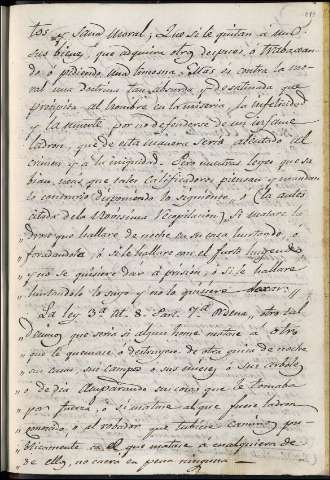 tos y Sana Moral; Que si le quitan á uno
sus bienes, que adquiera otros despues, ó trabaxan-
do, ó pidiendo una limosna. Mas es contra la mo-
ral una doctrina tan absurda y desatinada que
precipita al hombre en la miseria, la infelicidad
y la muerte, por no defenderse de un infame
ladron, que de esta manera seria alentado al
crimen y á la iniquidad. Pero nuestras leyes que sa-
bian, mas que tales calificadores, piensan y mandan
lo contrario disponiendo lo siguiente, ó (la autos
citada de la Novisima Recopilacion) Si matare la-
dron que hallare de noche en su casa hurtando, ó
foradandola, ó si le hallare con el furto huyendo
y no se quisiere dar á prision, ó si le hallare
hurtandole lo suyo y no lo quisiere dexar.
La ley 3ª tit. 8. Part. 7ª ordena, otro tal
Decimos que seria si algun home matare á otro
que le quemase ó destruyese de otra guisa de noche
su casa, sus campos, ó sus mieses, ó sus arboles
ó de dia amparando sus cosas que le tomaba
por fuerza, ó si matare al que fuere ladron
conocido, ó el robador que tubiere caminos pu-
blicamente ca el que matare á cualquiera de
de ellos, no caera en pena ninguna —